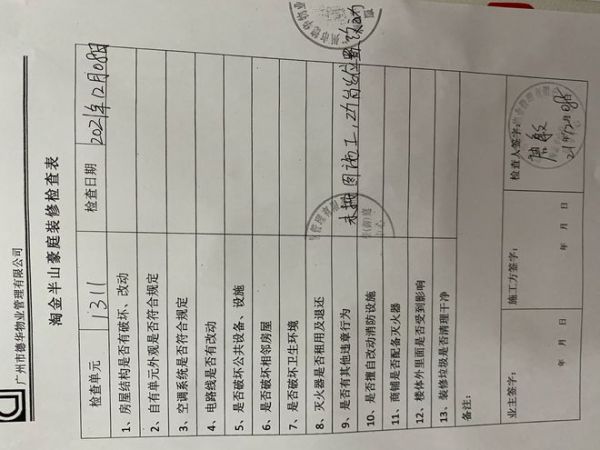 广州市德华物业管理有限公司
淘金半山豪庭装修检查表
检查单元 1311 检查日期 2021年12月08日
1、房屋结构是否有破坏、改动
2、自有单元外观是否符合规定
3、空调系统是否符合规定
4、电路线是否有改动
5、是否破坏公共设备、设施
6、是否破坏相邻房屋
7、是否破坏卫生环境
8、灭火器是否租用及退还
9、是否有其他违章行为 未按图施工,
10、是否擅自改动消防设施
11、商铺是否配备灭火器
12、楼体外里面是否受到影响
13、装修垃圾是否清理干净
备注:
业主签字: 施工方签字: 检查人签字:
年 月 日 年 月 日 21年12月08日